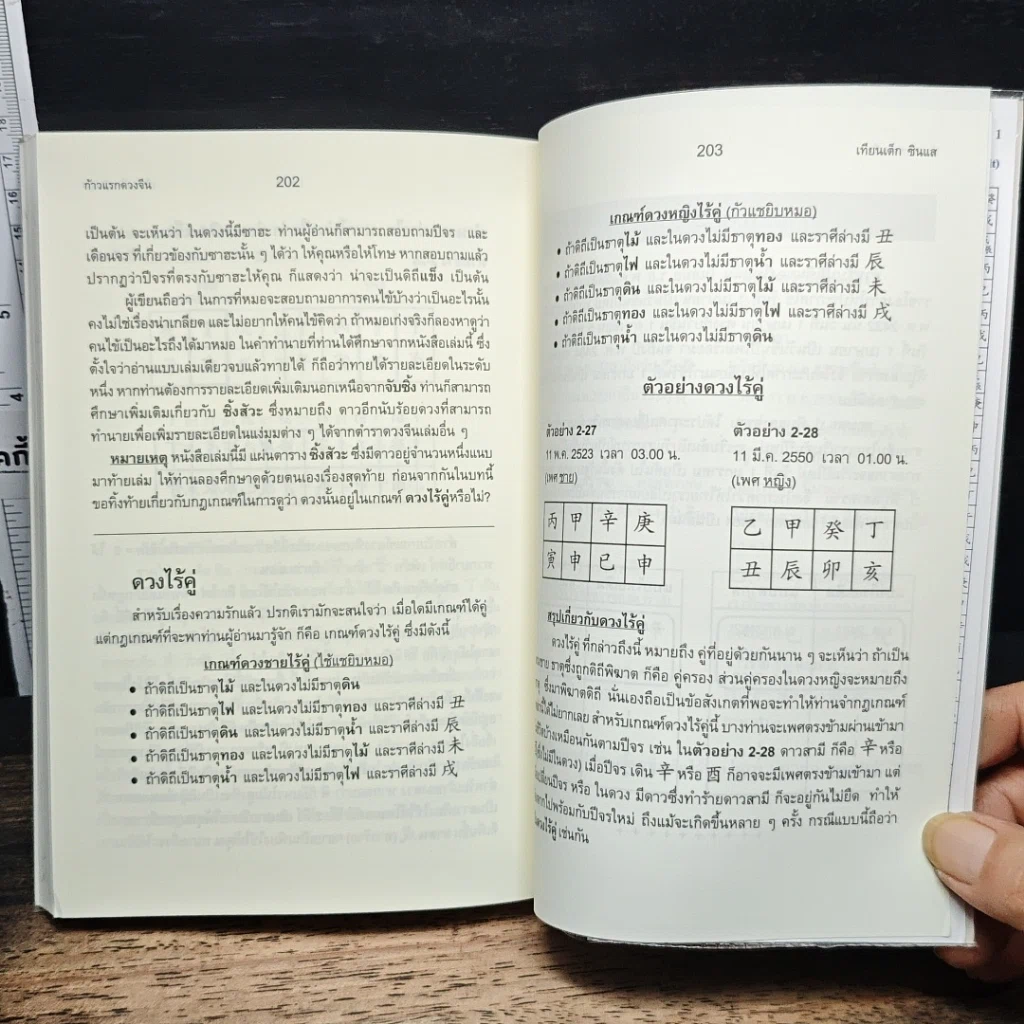 ก้าวแรกดวงจีน
202
เป็นต้น จะเห็นว่า ในดวงนี้มีซาฮะ ท่านผู้อ่านก็สามารถสอบถามปีจร และ
เดือนจร ที่เกี่ยวข้องกับซาฮะนั้น ๆ ได้ว่า ให้คุณหรือให้โทษ หากสอบถามแล้ว
ปรากฏว่าปีจรที่ตรงกับซาฮะให้คุณ ก็แสดงว่า น่าจะเป็นดิถีแข็ง เป็นต้น
ผู้เขียนถือว่า ในการที่หมอจะสอบถามอาการคนไข้บ้างว่าเป็นอะไรนั้น
คงไม่ใช่เรื่องน่าเกลียด และไม่อยากให้คนไข้คิดว่า ถ้าหมอเก่งจริงก็ลองหาดูว่า
คนไข้เป็นอะไรถึงได้มาหมอ ในคำทำนายที่ท่านได้ศึกษาจากหนังสือเล่มนี้ ซึ่ง
ตั้งใจว่าอ่านแบบเล่มเดียวจบแล้วทายได้ ก็ถือว่าทายได้รายละเอียดในระดับ
หนึ่ง หากท่านต้องการรายละเอียดเพิ่มเติมนอกเหนือจากจับซิ้ง ท่านก็สามารถ
ศึกษาเพิ่มเติมเกี่ยวกับ ซิ้งสัวะ ซึ่งหมายถึง ดาวอีกนับร้อยดวงที่สามารถ
ทำนายเพื่อเพิ่มรายละเอียดในแง่มุมต่าง ๆ ได้จากตำราดวงจีนเล่มอื่น ๆ
หมายเหตุ หนังสือเล่มนี้มี แผ่นตาราง ซิ้งสัวะ ซึ่งมีดาวอยู่จำนวนหนึ่งแนบ
มาท้ายเล่ม ให้ท่านลองศึกษาดูด้วยตนเองเรื่องสุดท้าย ก่อนจากกันในบทนี้
ขอทิ้งท้ายเกี่ยวกับกฎเกณฑ์ในการดูว่า ดวงนั้นอยู่ในเกณฑ์ ดวงไร้คู่หรือไม่?
ดวงไร้คู่
สำหรับเรื่องความรักแล้ว ปรกติเรามักจะสนใจว่า เมื่อใดมีเกณฑ์ได้คู่
แต่กฎเกณฑ์ที่จะพาท่านผู้อ่านมารู้จัก ก็คือ เกณฑ์ดวงไร้คู่ ซึ่งมีดังนี้
เกณฑ์ดวงชายไร้คู่ (ใช้แชยิบหมอ)
• ถ้าดิถีเป็นธาตุไม้ และในดวงไม่มีธาตุดิน
• ถ้าดิถีเป็นธาตุไฟ และในดวงไม่มีธาตุทอง และราศีล่างมี 丑
• ถ้าดิถีเป็นธาตุดิน และในดวงไม่มีธาตุน้ำ และราศีล่างมี 辰
• ถ้าดิถีเป็นธาตุทอง และในดวงไม่มีธาตุไม้ และราศีล่างมี 未
• ถ้าดิถีเป็นธาตุน้ำ และในดวงไม่มีธาตุไฟ และราศีล่างมี 戌
203
เทียนเต็ก ซินแส
เกณฑ์ดวงหญิงไร้คู่ (กัวแชยิบหมอ)
• ถ้าดิถีเป็นธาตุไม้ และในดวงไม่มีธาตุทอง และราศีล่างมี 丑
• ถ้าดิถีเป็นธาตุไฟ และในดวงไม่มีธาตุน้ำ และราศีล่างมี 辰
• ถ้าดิถีเป็นธาตุดิน และในดวงไม่มีธาตุไม้ และราศีล่างมี 未
• ถ้าดิถีเป็นธาตุทอง และในดวงไม่มีธาตุไฟ และราศีล่างมี 戌
• ถ้าดิถีเป็นธาตุน้ำ และในดวงไม่มีธาตุดิน
ตัวอย่างดวงไร้คู่
ตัวอย่าง 2-27
11 พ.ค. 2523 เวลา 03.00 น.
(เพศ ชาย)
丙 甲 辛 庚
寅 申 巳 申
ตัวอย่าง 2-28
11 มี.ค. 2550 เวลา 01.00 น.
(เพศ หญิง)
乙 甲 癸 丁
丑 辰 卯 亥
สรุปเกี่ยวกับดวงไร้คู่
ดวงไร้คู่ ที่กล่าวถึงนี้ หมายถึง คู่ที่อยู่ด้วยกันนาน ๆ จะเห็นว่า ถ้าเป็น
ธาตุซึ่งถูกดิถีพิฆาต ก็คือ คู่ครอง ส่วนคู่ครองในดวงหญิงจะหมายถึง
ซึ่งมาพิฆาตดิถี นั่นเองถือเป็นข้อสังเกตที่พอจะทำให้ท่านจำกฎเกณฑ์
ได้ไม่ยากเลย สำหรับเกณฑ์ดวงไร้คู่นี้ บางท่านจะมีเพศตรงข้ามผ่านเข้ามา
บ้างเหมือนกันตามปีจร เช่น ในตัวอย่าง 2-28 ดาวสามี ก็คือ 辛 หรือ
เมื่อปีจร เดิน 辛 หรือ 酉 ก็อาจจะมีเพศตรงข้ามเข้ามา แต่
เปลี่ยนปีจร หรือ ในดวง มีดาวซึ่งทำร้ายดาวสามี ก็จะอยู่กันไม่ยืด ทำให้
ไปพร้อมกับปีจรใหม่ ถึงแม้จะเกิดขึ้นหลาย ๆ ครั้ง กรณีแบบนี้ถือว่า
ดวงไร้คู่ เช่นกัน